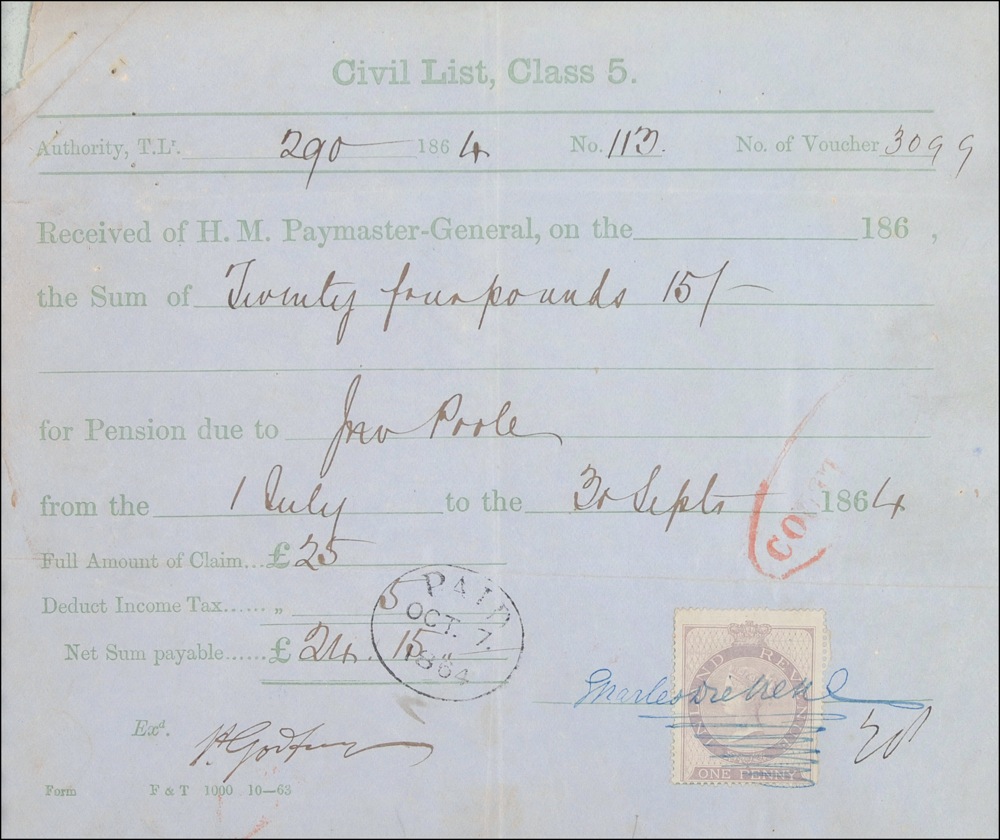 Civil List, Class 5.
Authority, T.Lr. 290 1864 No. 113. No. of Voucher 3099
Received of H. M. Paymaster-General, on the 186 ,
the Sum of Twenty four pounds 15/-
for Pension due to Jno Poole
from the 1 July to the 30 Septr 1864
Full Amount of Claim... £ 25
Deduct Income Tax...... „ 5
Net Sum payable...... £ 24. 15 „
PAID
OCT. 7.
1864
INLAND REVENUE
Charles Dickens
ONE PENNY
Exd.
Form F & T 1000 10—63